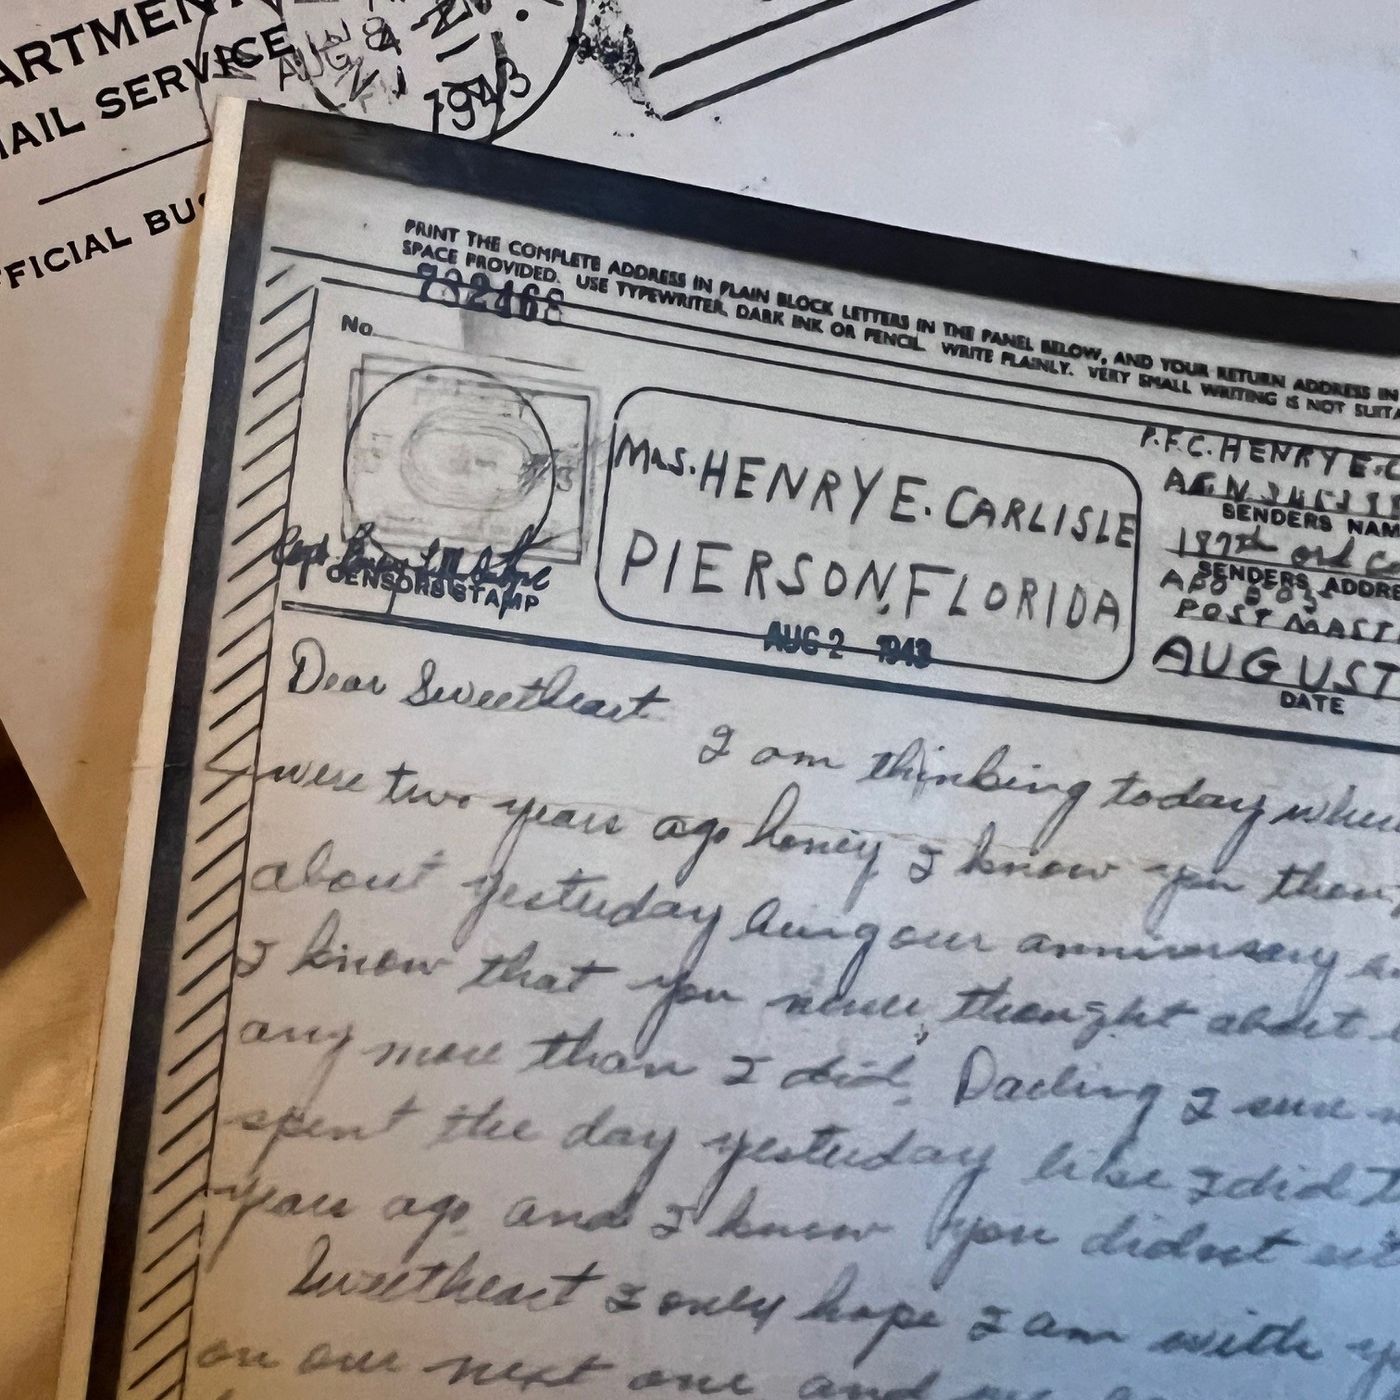 ARTMEN
MAIL SERVICE
AUG
1943
FFICIAL BUS
PRINT THE COMPLETE ADDRESS IN PLAIN BLOCK LETTERS IN THE PANEL BELOW, AND YOUR RETURN ADDRESS IN
SPACE PROVIDED. USE TYPEWRITER, DARK INK OR PENCIL. WRITE PLAINLY. VERY SMALL WRITING IS NOT SUITA
No.
CENSORS STAMP
MRS. HENRY E. CARLISLE
PIERSON, FLORIDA
AUG 2 1943
P.F.C. HENRY E. C
SENDERS NAM
187th ord Co
SENDERS ADDRE
APO
POST MAST
AUGUST
DATE
Dear Sweetheart
I am thinking today wh
were two years ago honey I know you
about yesterday being our anniversary
I know that you never thought about
any more than I did. Darling I sure
spent the day yesterday like I did t
years ago and I know you didnt
Sweetheart I only hope I am with y
on our next one and